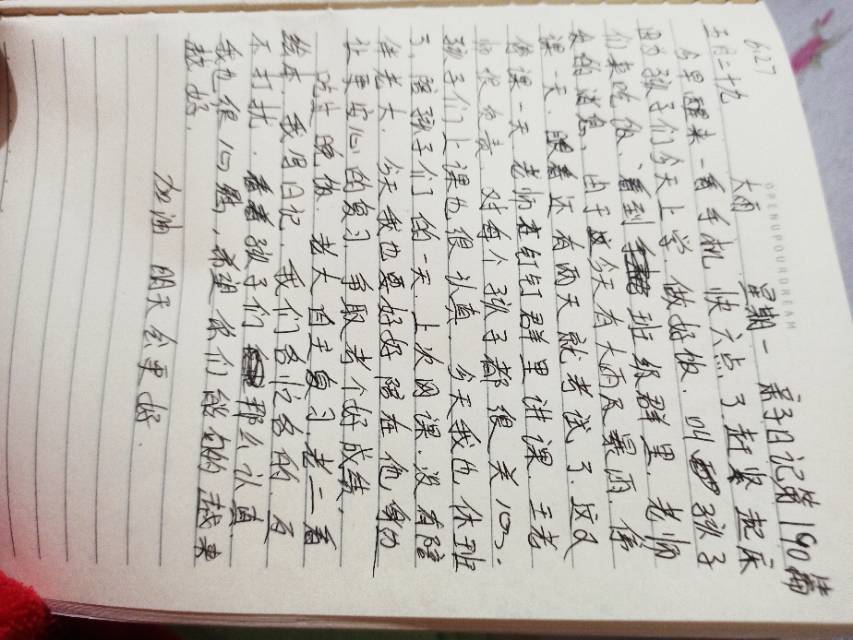 6.27
OPENUPOURDREAM
五月二十九 大雨 星期一 亲子日记第190篇
今早醒来一看手机快六点了赶紧起床
因为孩子们今天上学做好饭.叫孩子
们来吃饭、看到班级群里老师
发的消息、由于今天有大雨及暴雨.停
课一天.跟着还有两天就考试了.这又
停课一天 老师在钉钉群里讲课.王老
师很负责.对每个孩子都很关心.
孩子们上课也很认真.今天我也休班
了.陪孩子们的一天.上次网课.没有陪
老大.今天我也要好好陪在他身边
让更安心的复习.争取考个好成绩.
吃过晚饭.老大自主复习.老二看
绘本.我写日记.我们各忙各的.互
不打扰.看着孩子们那么认真.
我也很心疼,希望你们能的越来
越好.
加油 明天会更好.